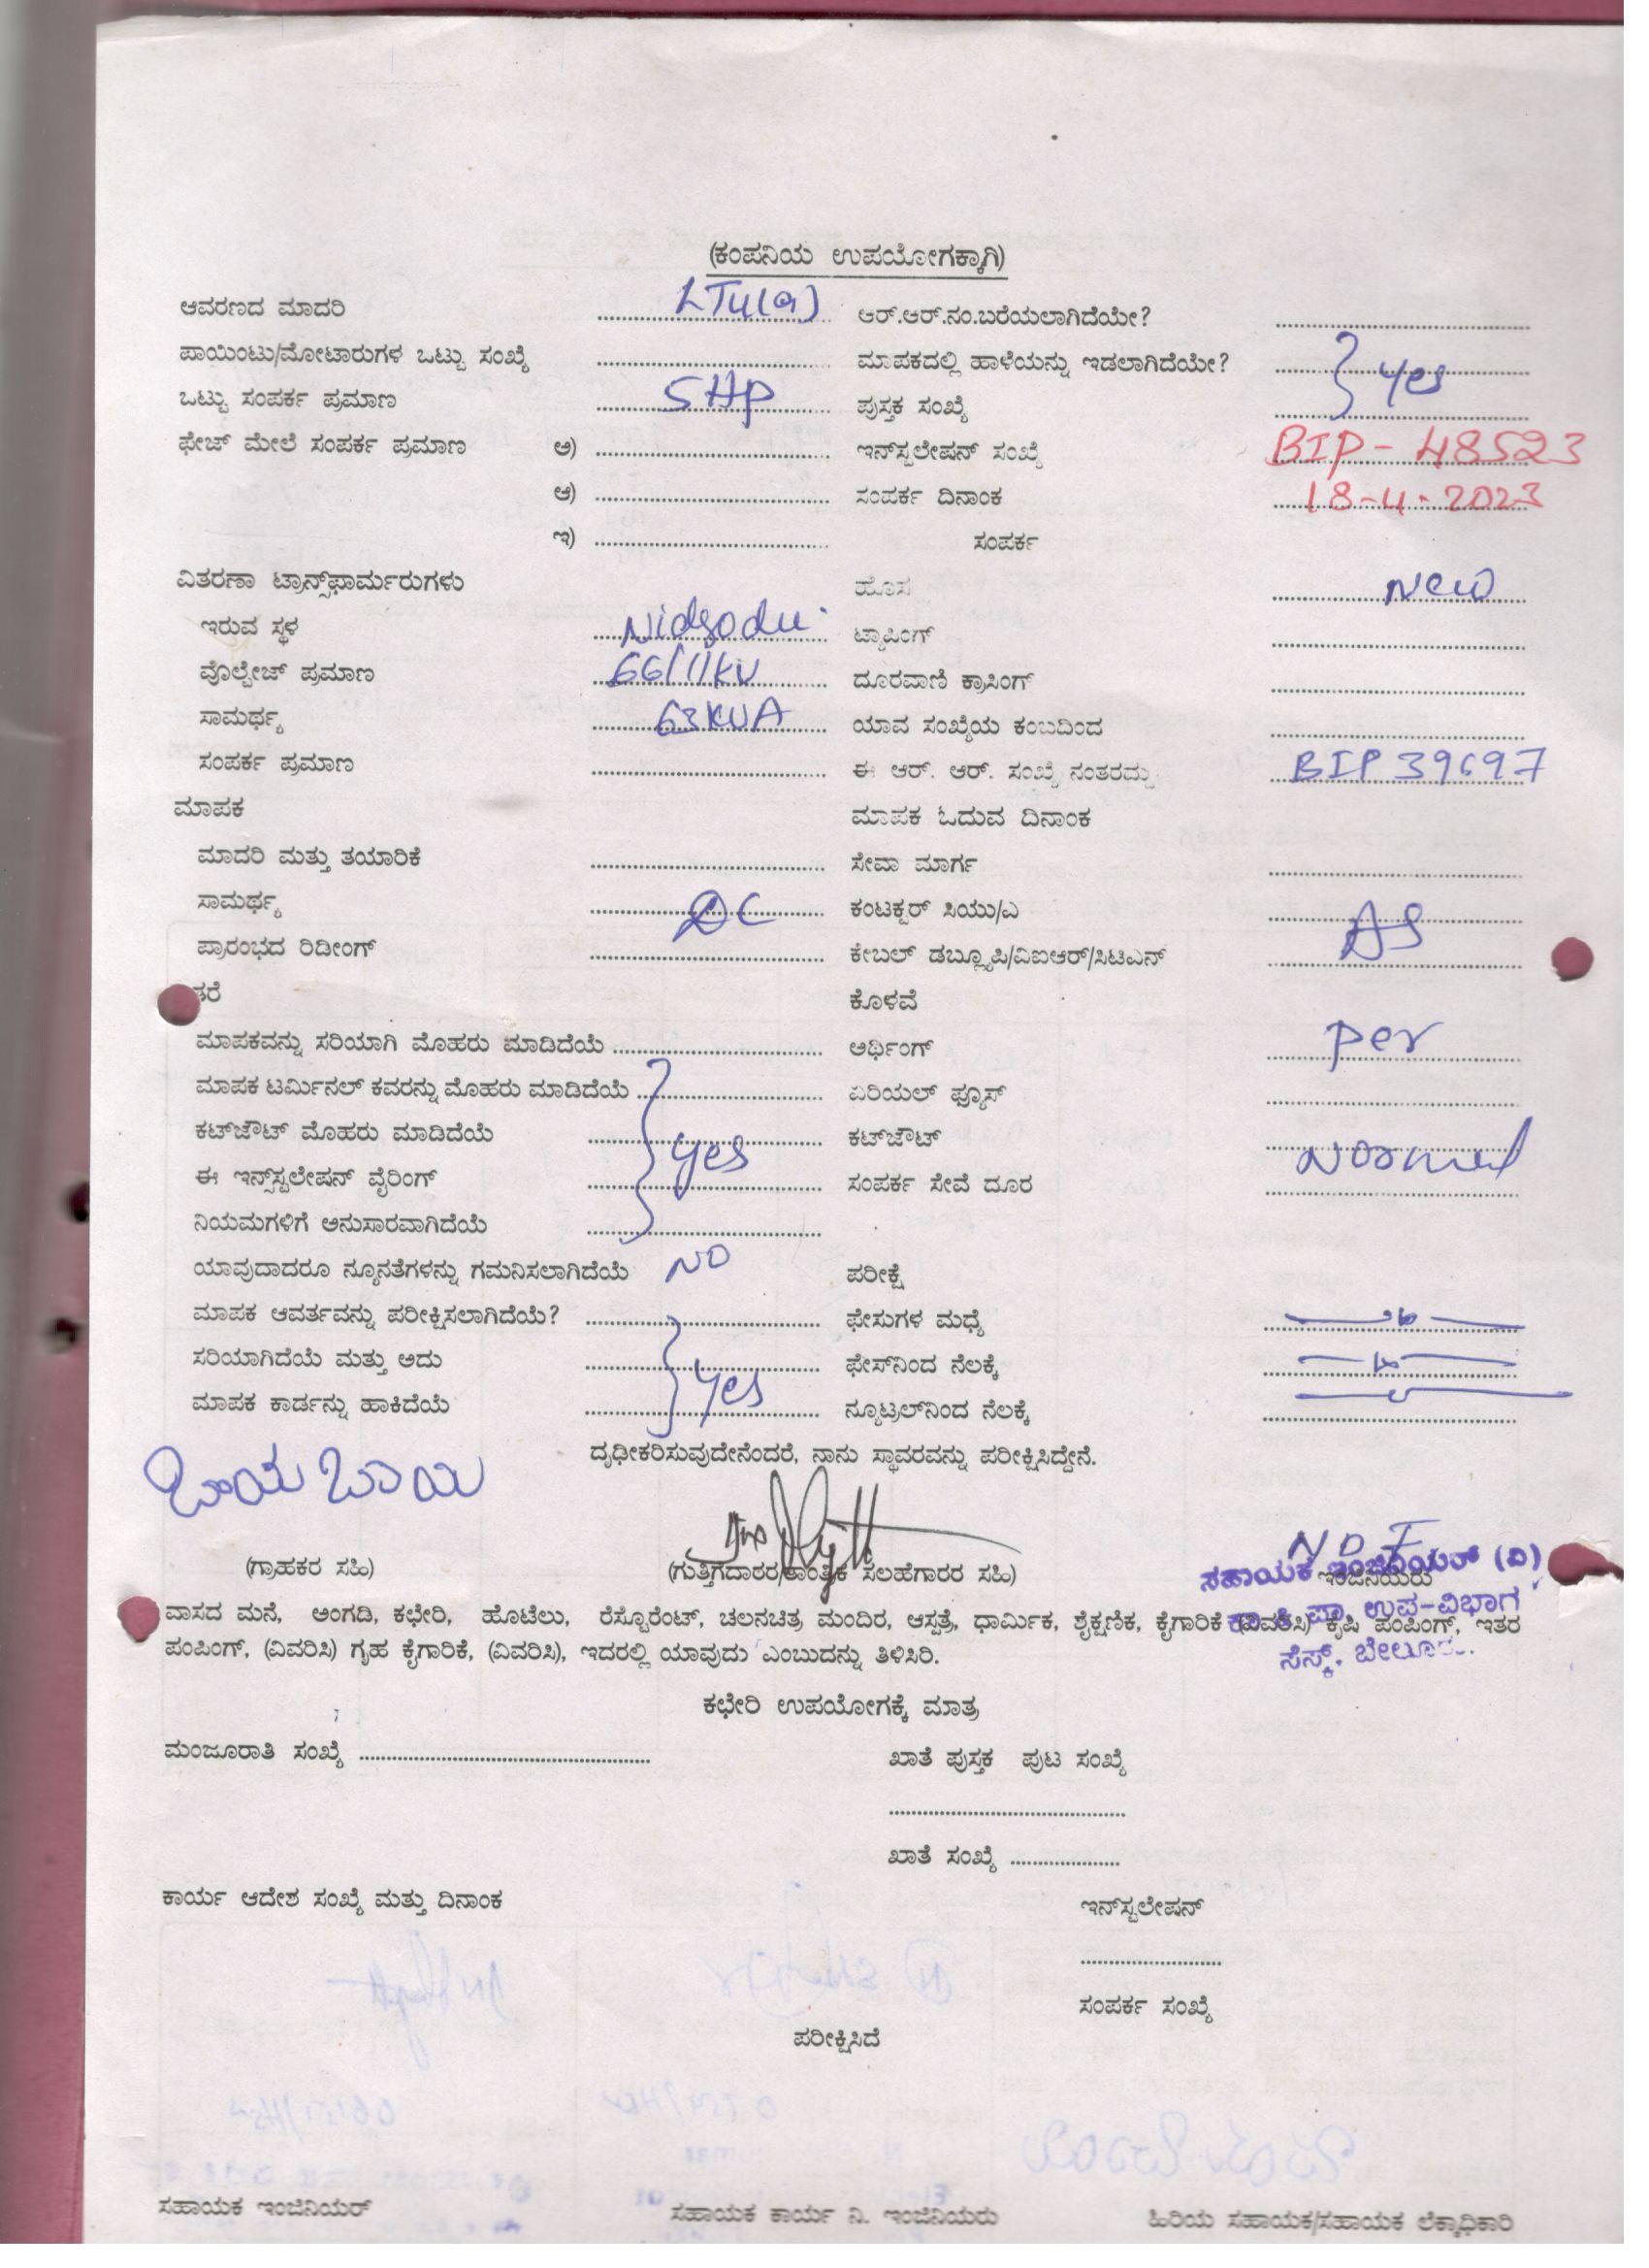 (ಕಂಪನಿಯ ಉಪಯೋಗಕ್ಕಾಗಿ)
ಆವರಣದ ಮಾದರಿ LT4(a) ಆರ್.ಆರ್.ನಂ.ಬರೆಯಲಾಗಿದೆಯೇ?
ಪಾಯಿಂಟು/ಮೋಟಾರುಗಳ ಒಟ್ಟು ಸಂಖ್ಯೆ ಮಾಪಕದಲ್ಲಿ ಹಾಳೆಯನ್ನು ಇಡಲಾಗಿದೆಯೇ? yes
ಒಟ್ಟು ಸಂಪರ್ಕ ಪ್ರಮಾಣ 5HP ಪುಸ್ತಕ ಸಂಖ್ಯೆ
ಫೇಜ್ ಮೇಲೆ ಸಂಪರ್ಕ ಪ್ರಮಾಣ ಅ) ಇನ್‌ಸ್ಟಲೇಷನ್ ಸಂಖ್ಯೆ BIP-48523
ಆ) ಸಂಪರ್ಕ ದಿನಾಂಕ 18-4-2023
ಇ) ಸಂಪರ್ಕ
ವಿತರಣಾ ಟ್ರಾನ್ಸ್‌ಫಾರ್ಮರುಗಳು ಹೊಸ New
ಇರುವ ಸ್ಥಳ Nidgodu ಟ್ಯಾಪಿಂಗ್
ವೊಲ್ಟೇಜ್ ಪ್ರಮಾಣ 66/11KV ದೂರವಾಣಿ ಕ್ರಾಸಿಂಗ್
ಸಾಮರ್ಥ್ಯ 63KVA ಯಾವ ಸಂಖ್ಯೆಯ ಕಂಬದಿಂದ
ಸಂಪರ್ಕ ಪ್ರಮಾಣ ಈ ಆರ್. ಆರ್. ಸಂಖ್ಯೆ ನಂತರದ್ದು BIP 39697
ಮಾಪಕ ಮಾಪಕ ಓದುವ ದಿನಾಂಕ
ಮಾದರಿ ಮತ್ತು ತಯಾರಿಕೆ ಸೇವಾ ಮಾರ್ಗ
ಸಾಮರ್ಥ್ಯ DC ಕಂಟಕ್ಟರ್ ಸಿಯು/ಎ AS
ಪ್ರಾರಂಭದ ರಿಡೀಂಗ್ ಕೇಬಲ್ ಡಬ್ಲ್ಯೂಪಿ/ವಿಐಆರ್/ಸಿಟಿಎನ್
ಕೊಳವೆ
ಮಾಪಕವನ್ನು ಸರಿಯಾಗಿ ಮೊಹರು ಮಾಡಿದೆಯೆ ಅರ್ಥಿಂಗ್ per
ಮಾಪಕ ಟರ್ಮಿನಲ್ ಕವರನ್ನು ಮೊಹರು ಮಾಡಿದೆಯೆ ಏರಿಯಲ್ ಫ್ಯೂಸ್
ಕಟ್‌ಜೌಟ್ ಮೊಹರು ಮಾಡಿದೆಯೆ yes ಕಟ್‌ಜೌಟ್ Normal
ಈ ಇನ್ಸ್‌ಸ್ಟಲೇಷನ್ ವೈರಿಂಗ್ ಸಂಪರ್ಕ ಸೇವೆ ದೂರ
ನಿಯಮಗಳಿಗೆ ಅನುಸಾರವಾಗಿದೆಯೆ
ಯಾವುದಾದರೂ ನ್ಯೂನತೆಗಳನ್ನು ಗಮನಿಸಲಾಗಿದೆಯೆ NO ಪರೀಕ್ಷೆ
ಮಾಪಕ ಆವರ್ತವನ್ನು ಪರೀಕ್ಷಿಸಲಾಗಿದೆಯೆ? ಫೇಸುಗಳ ಮಧ್ಯೆ
ಸರಿಯಾಗಿದೆಯೆ ಮತ್ತು ಅದು yes ಫೇಸ್‌ನಿಂದ ನೆಲಕ್ಕೆ
ಮಾಪಕ ಕಾರ್ಡನ್ನು ಹಾಕಿದೆಯೆ ನ್ಯೂಟ್ರಲ್‌ನಿಂದ ನೆಲಕ್ಕೆ
ದೃಢೀಕರಿಸುವುದೇನೆಂದರೆ, ನಾನು ಸ್ಥಾವರವನ್ನು ಪರೀಕ್ಷಿಸಿದ್ದೇನೆ.
(ಗ್ರಾಹಕರ ಸಹಿ) (ಗುತ್ತಿಗೆದಾರರ/ತಾಂತ್ರಿಕ ಸಲಹೆಗಾರರ ಸಹಿ) ಇಂಜಿನಿಯರು
ಸಹಾಯಕ ಇಂಜಿನಿಯರ್ (ವಿ)
ಉಪ-ವಿಭಾಗ
ಸೆಸ್ಕ್, ಬೇಲೂರು.
ವಾಸದ ಮನೆ, ಅಂಗಡಿ, ಕಛೇರಿ, ಹೊಟೆಲು, ರೆಸ್ಟೊರೆಂಟ್, ಚಲನಚಿತ್ರ ಮಂದಿರ, ಆಸ್ಪತ್ರೆ, ಧಾರ್ಮಿಕ, ಶೈಕ್ಷಣಿಕ, ಕೈಗಾರಿಕೆ (ವಿವರಿಸಿ) ಕೃಷಿ ಪಂಪಿಂಗ್, ಇತರ
ಪಂಪಿಂಗ್, (ವಿವರಿಸಿ) ಗೃಹ ಕೈಗಾರಿಕೆ, (ವಿವರಿಸಿ), ಇದರಲ್ಲಿ ಯಾವುದು ಎಂಬುದನ್ನು ತಿಳಿಸಿರಿ.
ಕಛೇರಿ ಉಪಯೋಗಕ್ಕೆ ಮಾತ್ರ
ಮಂಜೂರಾತಿ ಸಂಖ್ಯೆ ಖಾತೆ ಪುಸ್ತಕ ಪುಟ ಸಂಖ್ಯೆ
ಖಾತೆ ಸಂಖ್ಯೆ
ಕಾರ್ಯ ಆದೇಶ ಸಂಖ್ಯೆ ಮತ್ತು ದಿನಾಂಕ ಇನ್‌ಸ್ಟಲೇಷನ್
ಸಂಪರ್ಕ ಸಂಖ್ಯೆ
ಪರೀಕ್ಷಿಸಿದೆ
ಸಹಾಯಕ ಇಂಜಿನಿಯರ್ ಸಹಾಯಕ ಕಾರ್ಯ ನಿ. ಇಂಜಿನಿಯರು ಹಿರಿಯ ಸಹಾಯಕ/ಸಹಾಯಕ ಲೆಕ್ಕಾಧಿಕಾರಿ